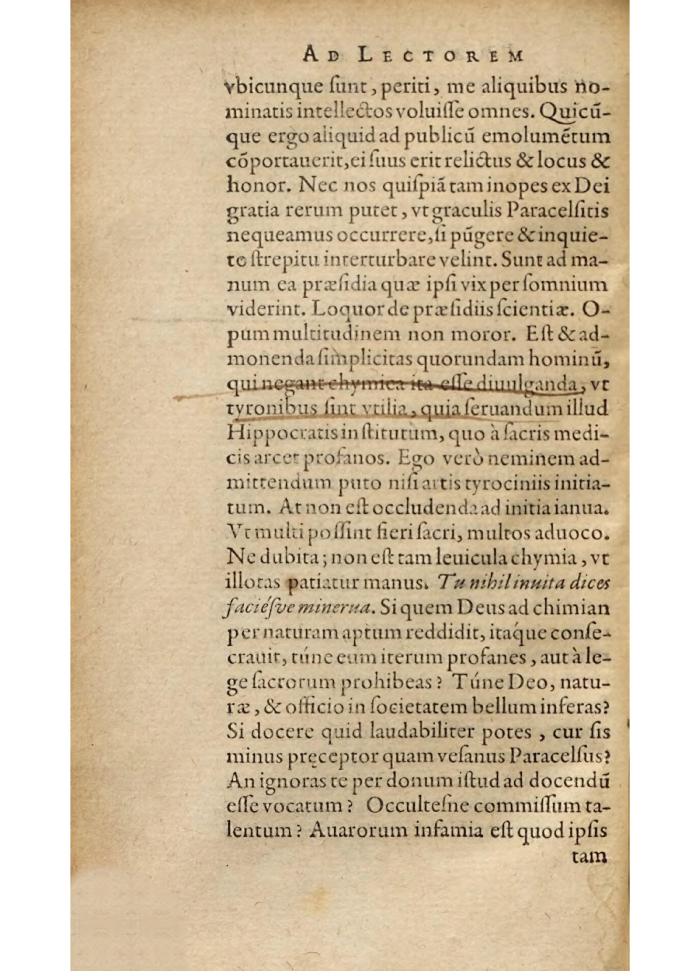 AD LECTOREM
vbicunque ſunt, periti, me aliquibus no-
minatis intellectos voluiſſe omnes. Quicũ-
que ergo aliquid ad publicũ emolumẽtum
cõportauerit, ei ſuus erit relictus & locus &
honor. Nec nos quiſpiã tam inopes ex Dei
gratia rerum putet, vt graculis Paracelſitis
nequeamus occurrere, ſi pũgere & inquie-
to ſtrepitu interturbare velint. Sunt ad ma-
num ea præſidia quæ ipſi vix per ſomnium
viderint. Loquor de præſidiis ſcientiæ. O-
pum multitudinem non moror. Eſt & ad-
monenda ſimplicitas quorundam hominũ,
qui negant chymica ita eſſe diuulganda, vt
tyronibus ſint vtilia, quia ſeruandum illud
Hippocratis inſtitutum, quo à ſacris medi-
cis arcet profanos. Ego verò neminem ad-
mittendum puto niſi artis tyrociniis initia-
tum. At non eſt occludenda ad initia ianua.
Vt multi poſſint fieri ſacri, multos aduoco.
Ne dubita; non eſt tam leuicula chymia, vt
illotas patiatur manus. Tu nihil inuita dices
faciéſve minerua. Si quem Deus ad chimian
per naturam aptum reddidit, itáque conſe-
crauit, túne eum iterum profanes, aut à le-
ge ſacrorum prohibeas? Túne Deo, natu-
ræ, & officio in ſocietatem bellum inferas?
Si docere quid laudabiliter potes, cur ſis
minus pręceptor quam veſanus Paracelſus?
An ignoras te per donum iſtud ad docendũ
eſſe vocatum? Occulteſne commiſſum ta-
lentum? Auarorum infamia eſt quod ipſis
tam